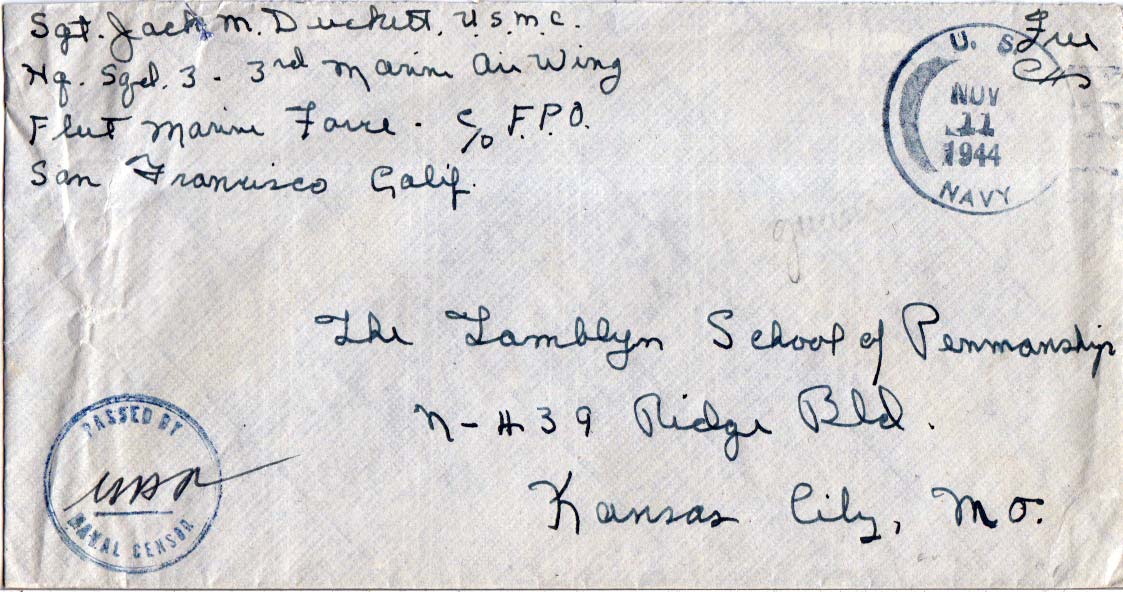 Sgt. Jack M. Duckett, U.S.M.C.
Hq. Sqd. 3 - 3rd Marine Air Wing
Fleet Marine Force - c/o F.P.O.
San Francisco Calif.
Free
U. S.
NOV
11
1944
NAVY
The Tamblyn School of Penmanship
N-439 Ridge Bld.
Kansas City, Mo.
PASSED BY
NAVAL CENSOR